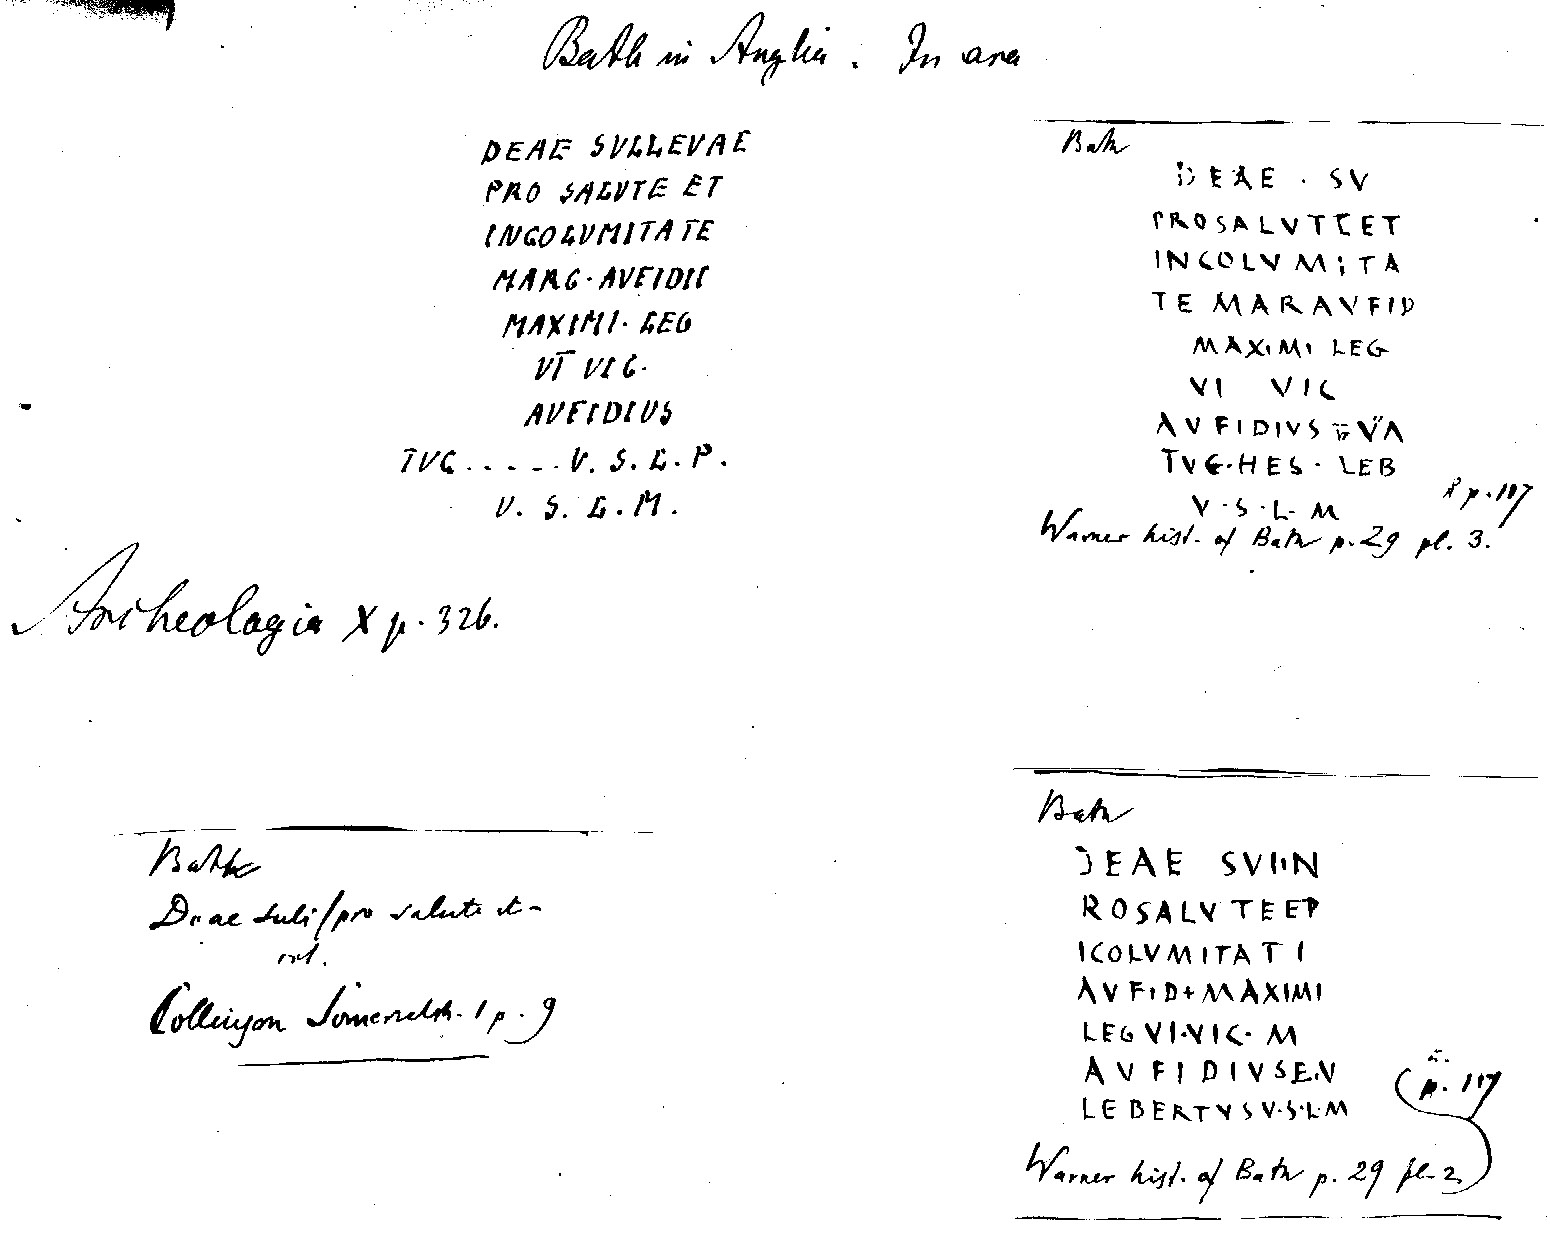 Bath in Anglia. In ara
DEAE SVLLEVAE
PRO SALUTE ET
INCOLVMITATE
MARC·AVFIDII
MAXIMI·LEG
VI VIC·
AVFIDIUS
TVC.....V.S.L.P.
V.S.L.M.
Archeologia X p. 326.
Bath
DEAE · SV
PROSALVTEET
INCOLVMITA
TE MARAVFID
MAXIMI LEG
VI VIC
AVFIDIVS VA
TVC·HES·LEB
V·S·L·M
p. 117
Warner hist. of Bath p. 29 pl. 3.
Bath
Deae Suli/pro salute et-
Collinson Somersetsh. 1 p. 9
Bath
DEAE SVIIN
ROSALVTEET
ICOLVMITATI
AVFID+MAXIMI
LEG VI·VIC·M
AVFIDIVSE.V
LEBERTVSV·S·L·M
p. 117
Warner hist. of Bath p. 29 pl. 2